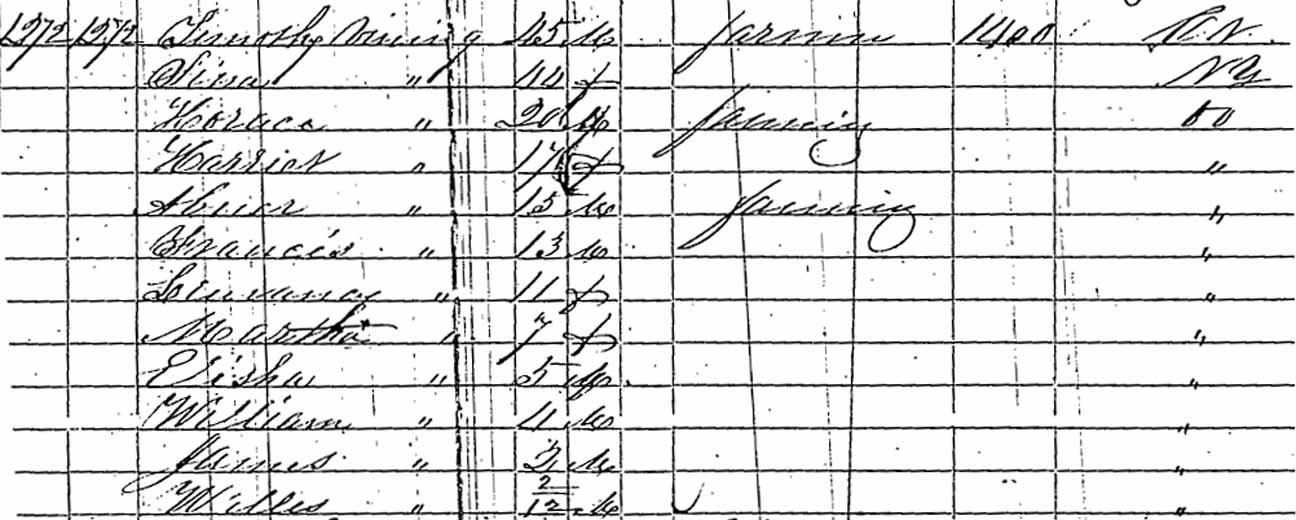 1272 1272 Timothy Vining 45 M Farming 1400 N.Y.
Sina " 44 f NY
Horace " 20 M Farming Do
Harriet " 17 f "
Abner " 15 M Farming "
Francis " 13 M "
" 11 f "
Martha " 7 f "
Elisha " 5 M "
William " 4 M "
James " 2 M "
Willes " 2/12 M "